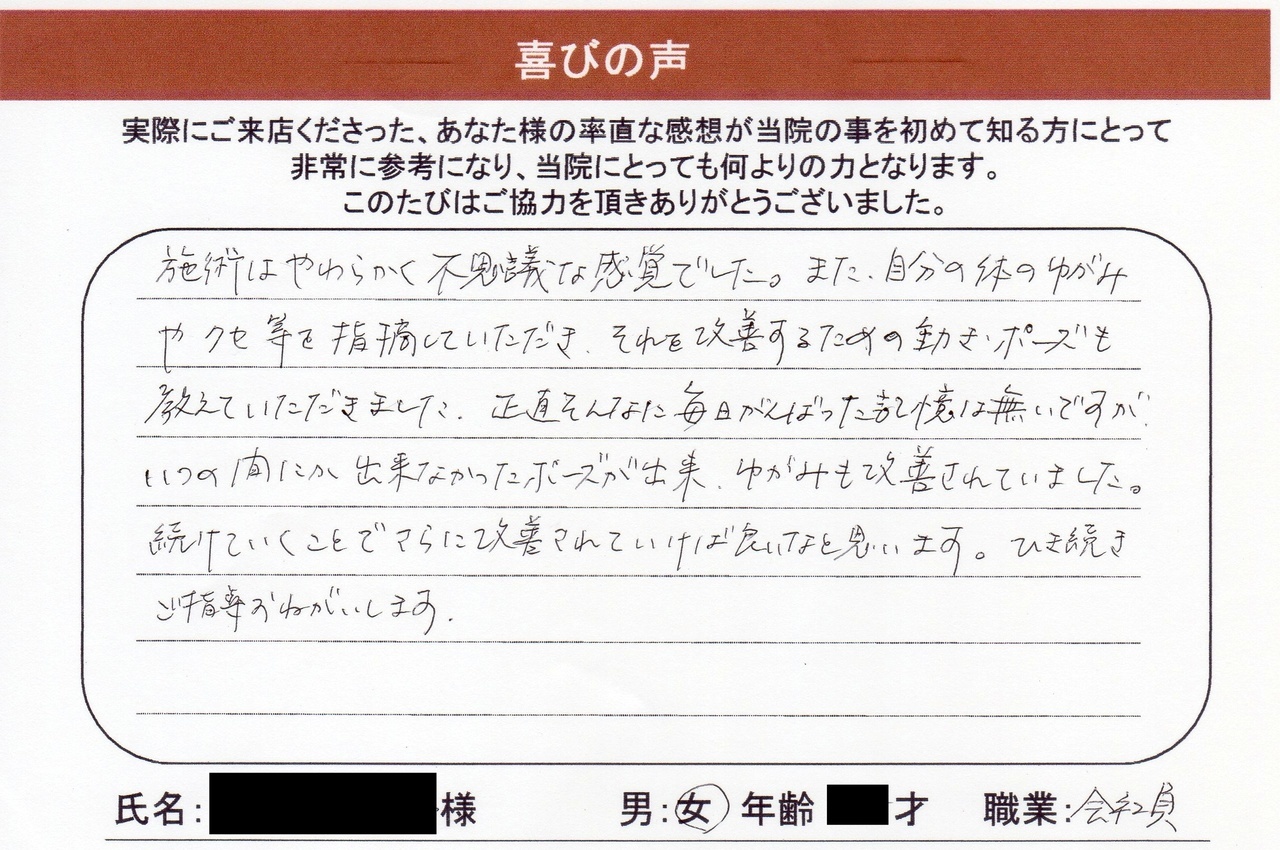 喜びの声
実際にご来店くださった、あなた様の率直な感想が当院の事を初めて知る方にとって
非常に参考になり、当院にとっても何よりの力となります。
このたびはご協力を頂きありがとうございました。
施術はやわらかく不思議な感覚でした。また、自分の体のゆがみ
やクセ等を指摘していただき、それを改善するための動き・ポーズも
教えていただきました。正直そんなに毎日がんばった記憶は無いですが
いつの間にか出来なかったポーズが出来、ゆがみも改善されていました。
続けていくことでさらに改善されていけば良いなと思います。ひき続き
ご指導おねがいします。
氏名: 様 男:女 年齢 才 職業:会社員